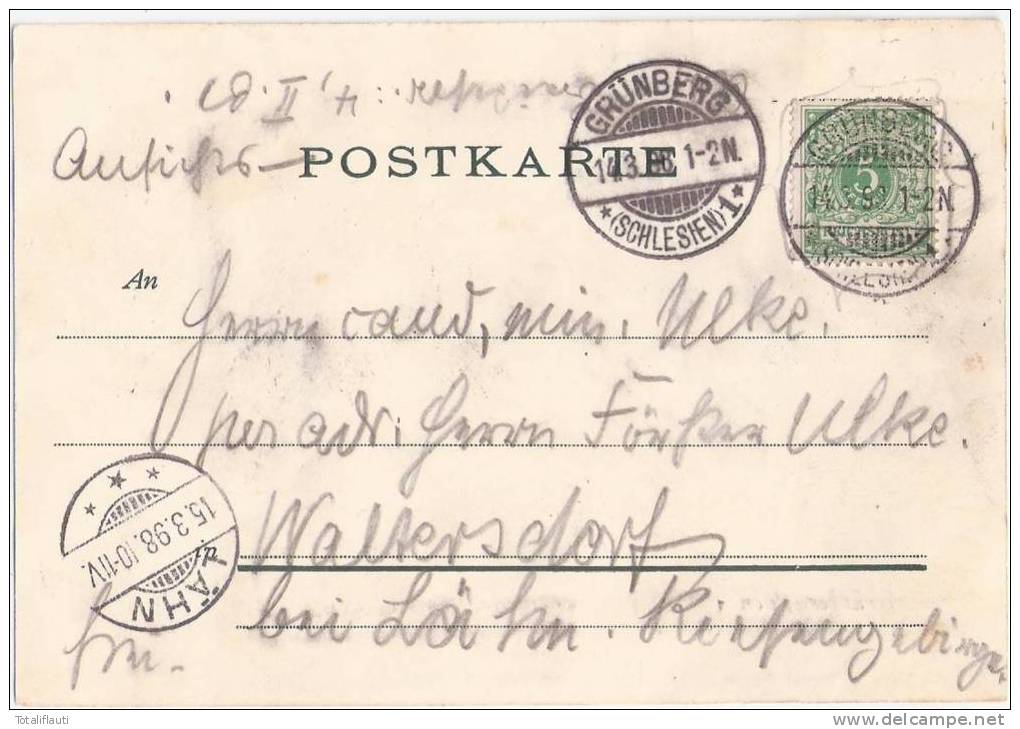 4. II. 97.
Ansichts-POSTKARTE
GRÜNBERG
14.3.98. 1-2N.
*(SCHLESIEN) 1*
GRÜNBERG
5
14.3.98. 1-2N.
(SCHLESIEN) 1
An
Herrn cand, min. Ulke.
per adr. Herrn Förster Ulke.
Waltersdorf
in
bei Lähn. Riesengebirge.
LÄHN
15.3.98. 10-11V.
Totaliflauti
www.delcampe.net